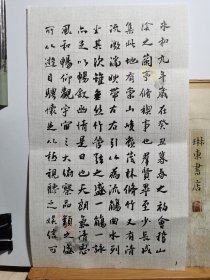 永和九年歲在癸丑暮春之初會稽山
陰之蘭亭脩稧事也群賢畢至少長咸
集此地有崇山峻嶺茂林脩竹又有清
流激湍映帶左右引以為流觴曲水列
坐其次雖無絲竹管絃之盛一觴一詠
亦足以暢敘幽情是日也天朗氣清惠
風和暢仰觀宇宙之大俯察品類之盛
所以遊目騁懷足以極視聽之娛信可
琳東書店